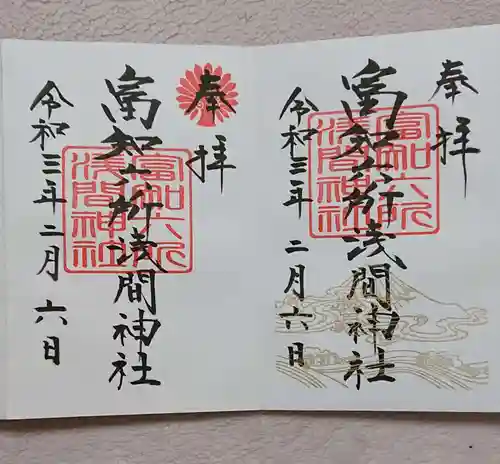 奉拝
富知六所浅間神社
富知六所浅間神社
令和三年二月六日
奉拝
富知六所浅間神社
富知六所浅間神社
令和三年二月六日